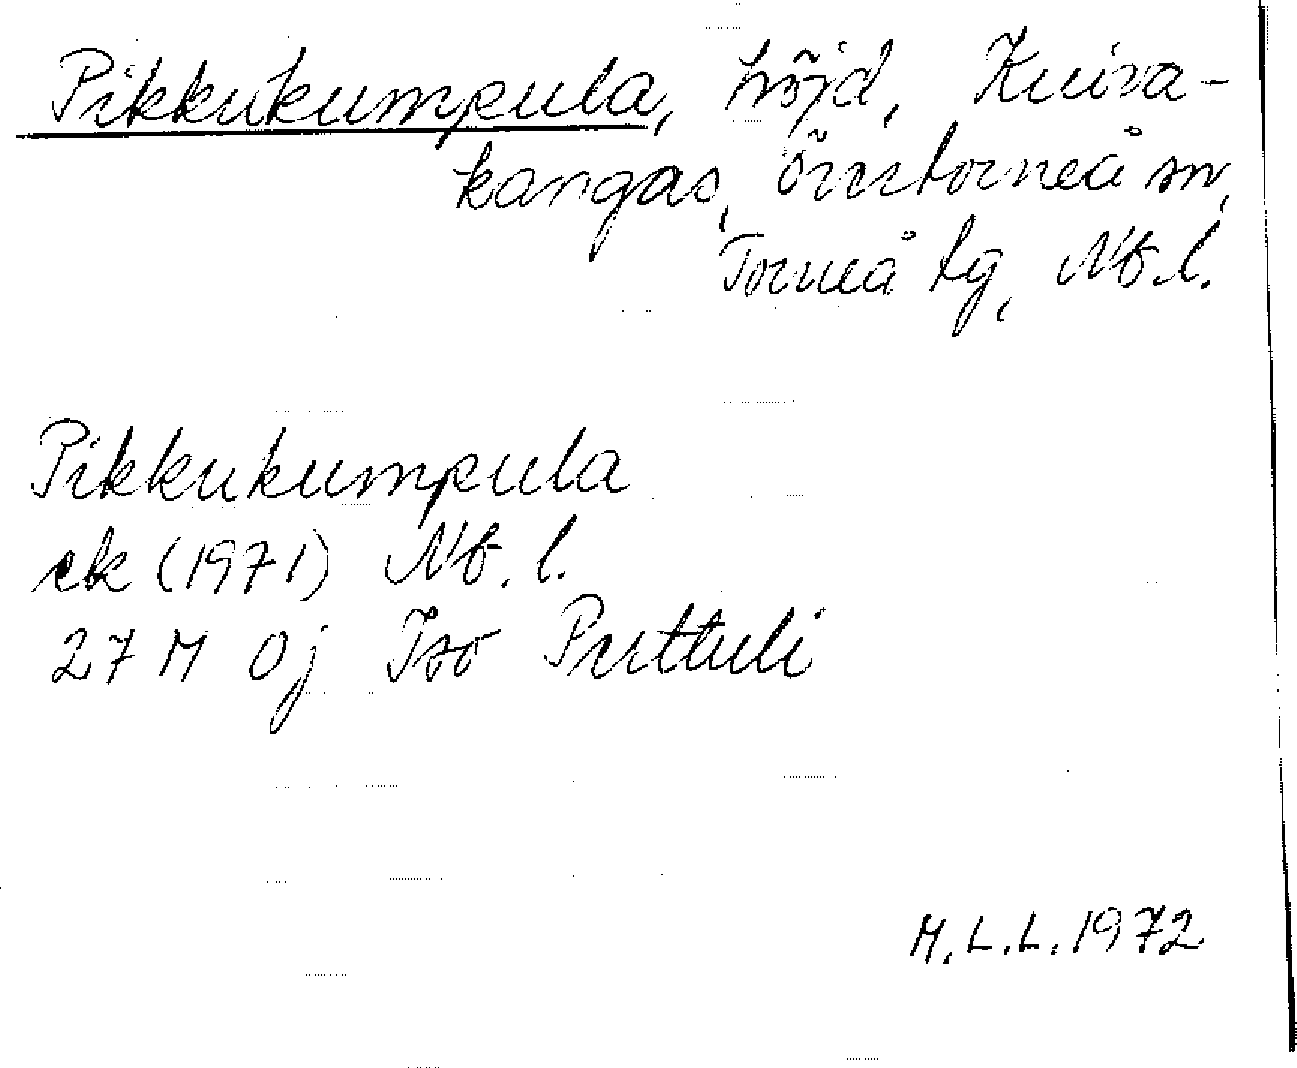 Pikkukumpula, höjd, Kuiva-
kangas, Övertorneå sn,
Torneå tg, Nb.l.
Pikkukumpula
ek (1971) Nb. l.
27 M 0j Iso Perttuli
M.L.L. 1972